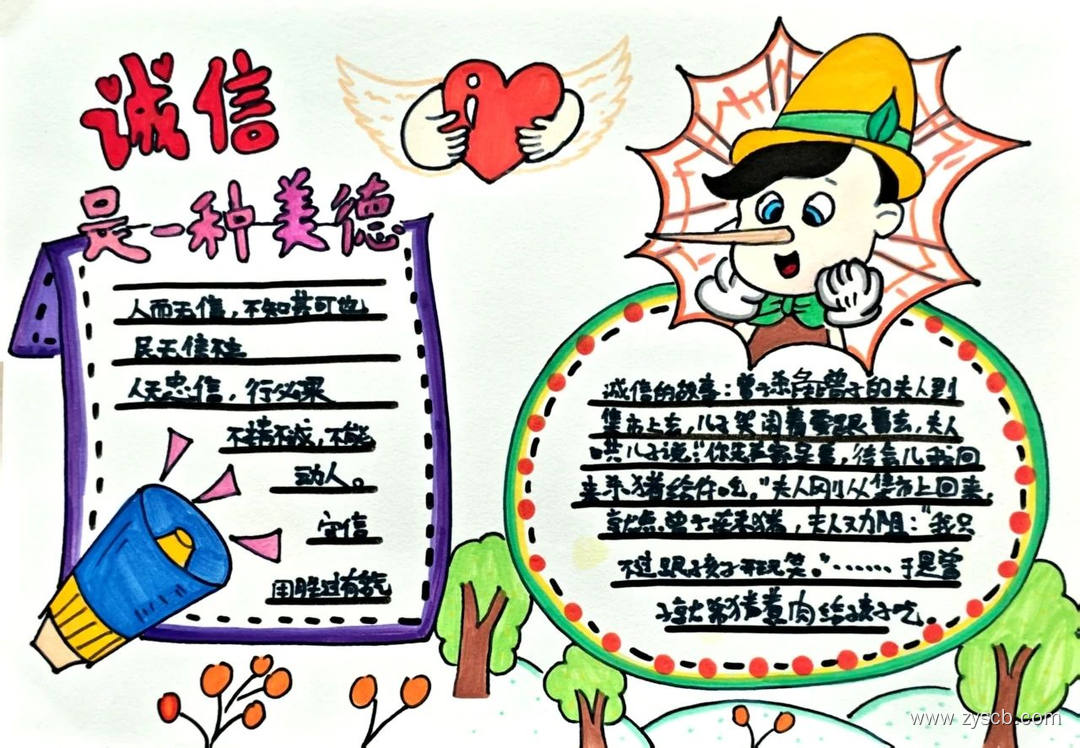 诚信
是一种美德
人而无信，不知其可也
民无信不立
人无忠信，行必果
不精不诚，不能
动人。
守信
用胜过有名气
诚信的故事：曾子杀曾子的夫人到
集市上去，儿子哭闹着要跟着去，夫人
哄儿子说：“你先回家，待会儿我回
来杀猪给你吃。”夫人刚从集市上回来，
就见曾子要杀猪，夫人劝阻：“我只
不过跟孩子开玩笑。”……于是曾
子就杀猪煮肉给孩子吃。
www.zyscb.com